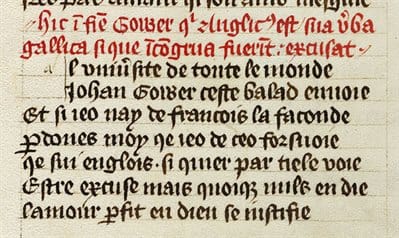 hic ī fiē Gower qⁱ Anglicꝰ est sua v̄ba
gallica si que īcōgrua fuerīt . excusat
al vniuˀsite de toute le monde
Johan Gower ceste balad enuoie
Et si ieo nay de francois la faconde
ꝑdones moy qe ieo de ceo forsuoie
qe sui englois . si quier par tiele voie
Estre excuse mais quoiqe nuls en die
lamour ꝑfit en dieu se iustifie